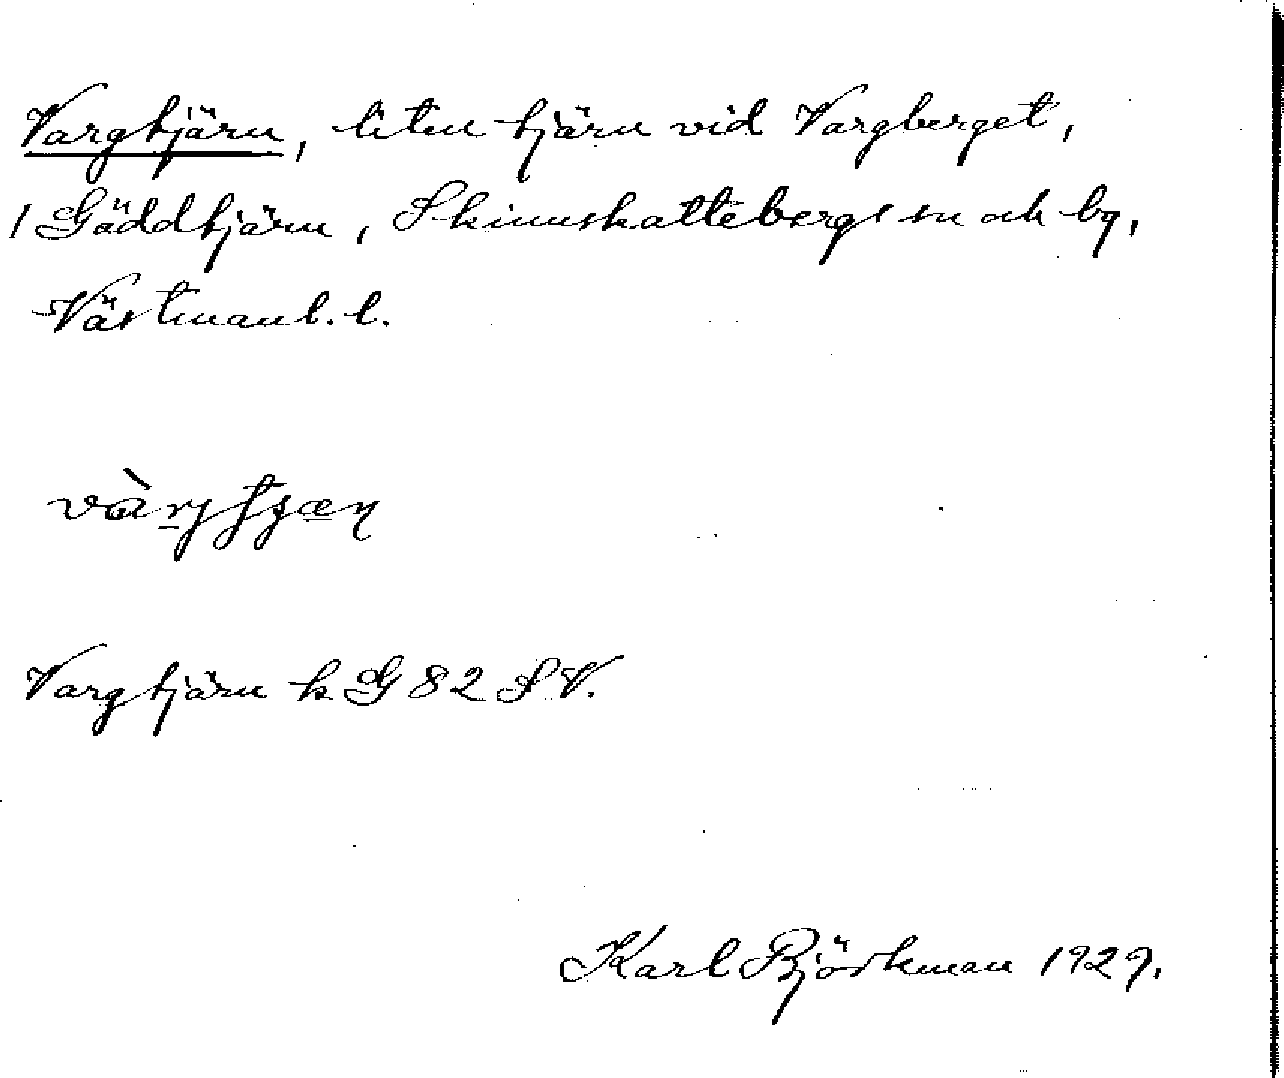 Vargtjärn, liten tjärn vid Vargberget,
/ Gäddtjärn, Skinnskattebergs sn och by,
Västmanl. l.
Vargtjärn k G 82 S V.
Karl Björkman 1929.